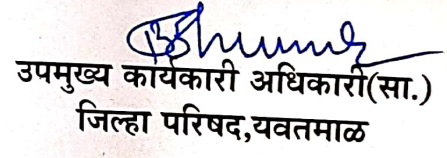 उपमुख्य कार्यकारी अधिकारी(सा.)
जिल्हा परिषद,यवतमाळ